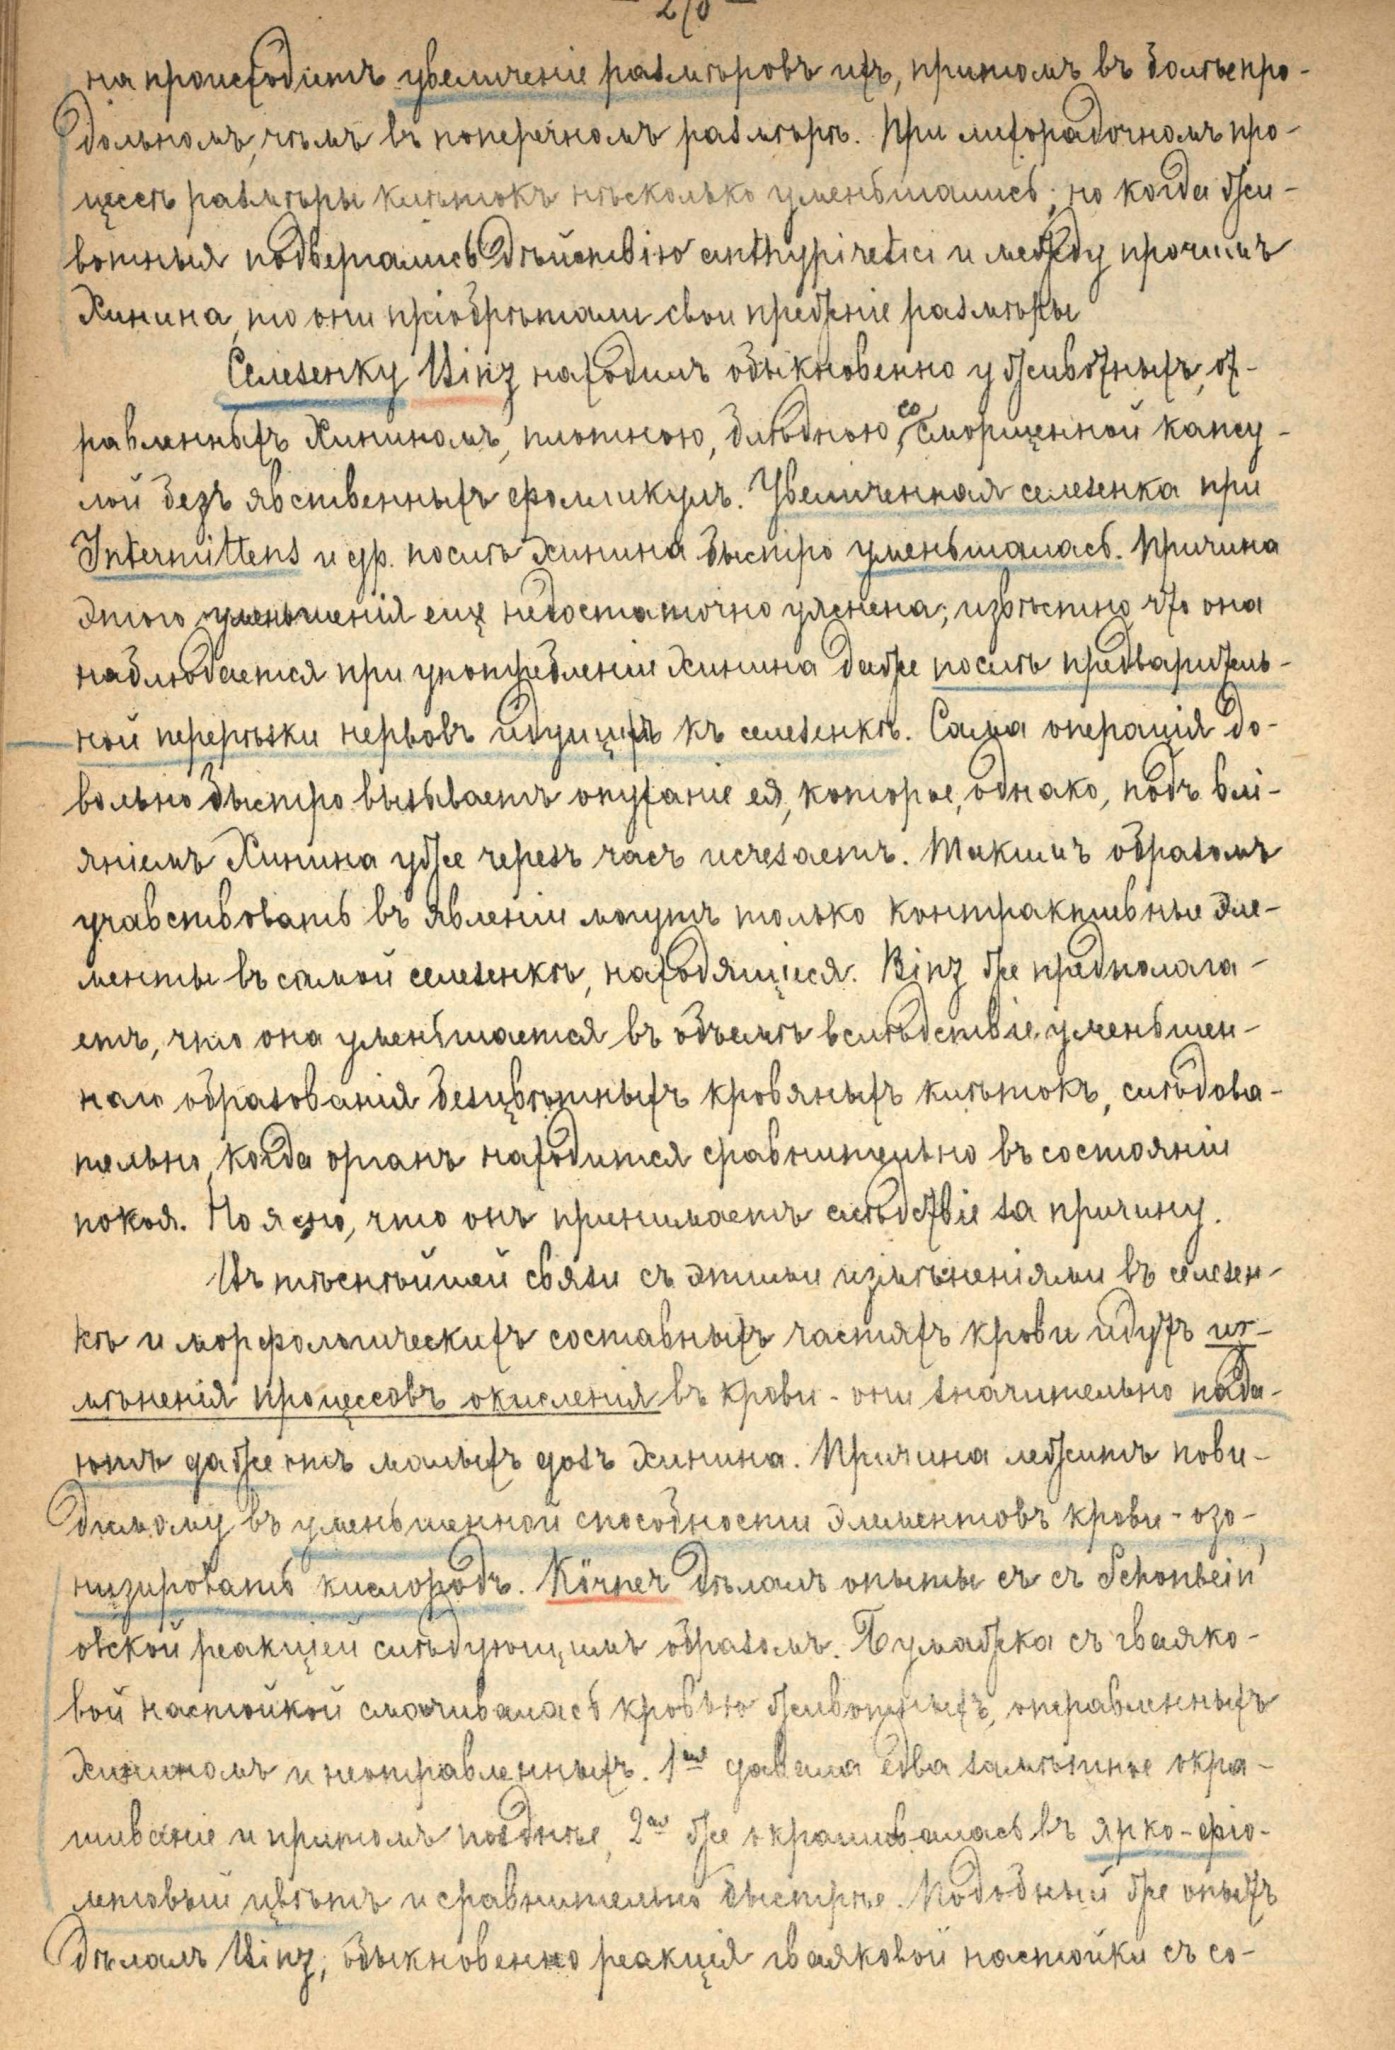 на происходитъ увеличеніе размѣровъ ихъ, притомъ въ болѣе про-
дольномъ, чѣмъ въ поперечномъ размѣрѣ. При лихорадочномъ про-
цессѣ размѣры клѣтокъ нѣсколько уменьшались; но когда жи-
вотныя подвергались дѣйствію anthypiretici и между прочимъ
Хинина, то они пріобрѣтали свои прежніе размѣры
Селезенку Binz находилъ обыкновенно у животныхъ, от-
равленныхъ Хининомъ, плотною, блѣдною, со сморщенной капсу-
лой безъ явственныхъ фолликулъ. Увеличенная селезенка при
Intermittens и др. послѣ хинина быстро уменьшалась. Причина
этого уменьшенія ещ недостаточно уяснена; извѣстно что она
наблюдается при употребленіи хинина даже послѣ предваритель-
ной перерѣзки нервовъ идущихъ къ селезенкѣ. Сама операція до-
вольно быстро вызываетъ опуханіе ея, которое, однако, подъ влі-
яніемъ Хинина уже черезъ часъ исчезаетъ. Такимъ образомъ
учавствовать въ явленіи могутъ только контрактивные эле-
менты въ самой селезенкѣ, находящіеся. Binz же предполага-
етъ, что она уменьшается въ объемѣ вслѣдствіе уменьшен-
наго образованія безцвѣтныхъ кровяныхъ клѣтокъ, слѣдова-
тельно, когда органъ находится сравнительно въ состояніи
покоя. Но ясно, что онъ принимаетъ слѣдствіе за причину.
Въ тѣснѣйшей связи съ этими измѣненіями въ селезен-
кѣ и морфологическихъ составныхъ частяхъ крови идутъ из-
мѣненія процессовъ окисленія въ крови - они значительно пада-
ютъ даже отъ малыхъ дозъ хинина. Причина лежитъ пови-
димому въ уменьшенной способности элементовъ крови - озо-
низировать кислородъ. Körner дѣлалъ опыты съ съ Schonbein'
овской реакціей слѣдующимъ образомъ. Бумажка съ гваяко-
вой настойкой смачивалась кровью животныхъ, отравленныхъ
хининомъ и неотравленныхъ. 1ая давала едва замѣтное окра-
шиваніе и притомъ позднѣе, 2ая же окрашивалась въ ярко-фіо-
летовый цвѣтъ и сравнительно быстрѣе. Подобный же опытъ
дѣлалъ Binz; обыкновенно реакція гваяковой настойки съ со-